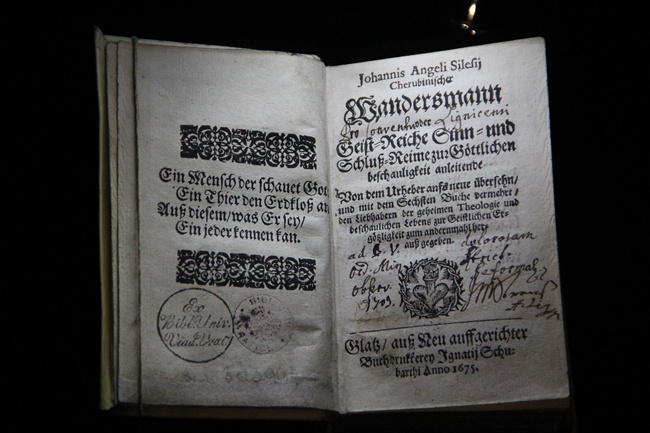 Ein Mensch der schauet Got
Ein Thier den Erdkloß an
Auß diesem/was Er sey/
Ein jeder kennen kan.
Ex
Bibl. Univ.
Viad. Vrat.
Johannis Angeli Silesij
Cherubinischer
Wandersmann
Pro Conventu oder Lignicensi
Geist-Reiche Sinn- und
Schluß-Reime zur Göttlichen
beschauligkeit anleitende
Von dem Urheber aufs neue übersehn/
und mit dem Sechsten Buche vermehrt/
den Liebhabern der geheimen Theologie und
beschaulichen Lebens zur Geistlichen Er-
götzligkeit zum andernmahl her-
auß gegeben.
ad B. V. dolorosam
Ord. Min
Obser.
1703.
Reformat
Glatz/ auß Neu auffgerichter
Buchdrukkerey Ignatij Schu-
barthi Anno 1675.